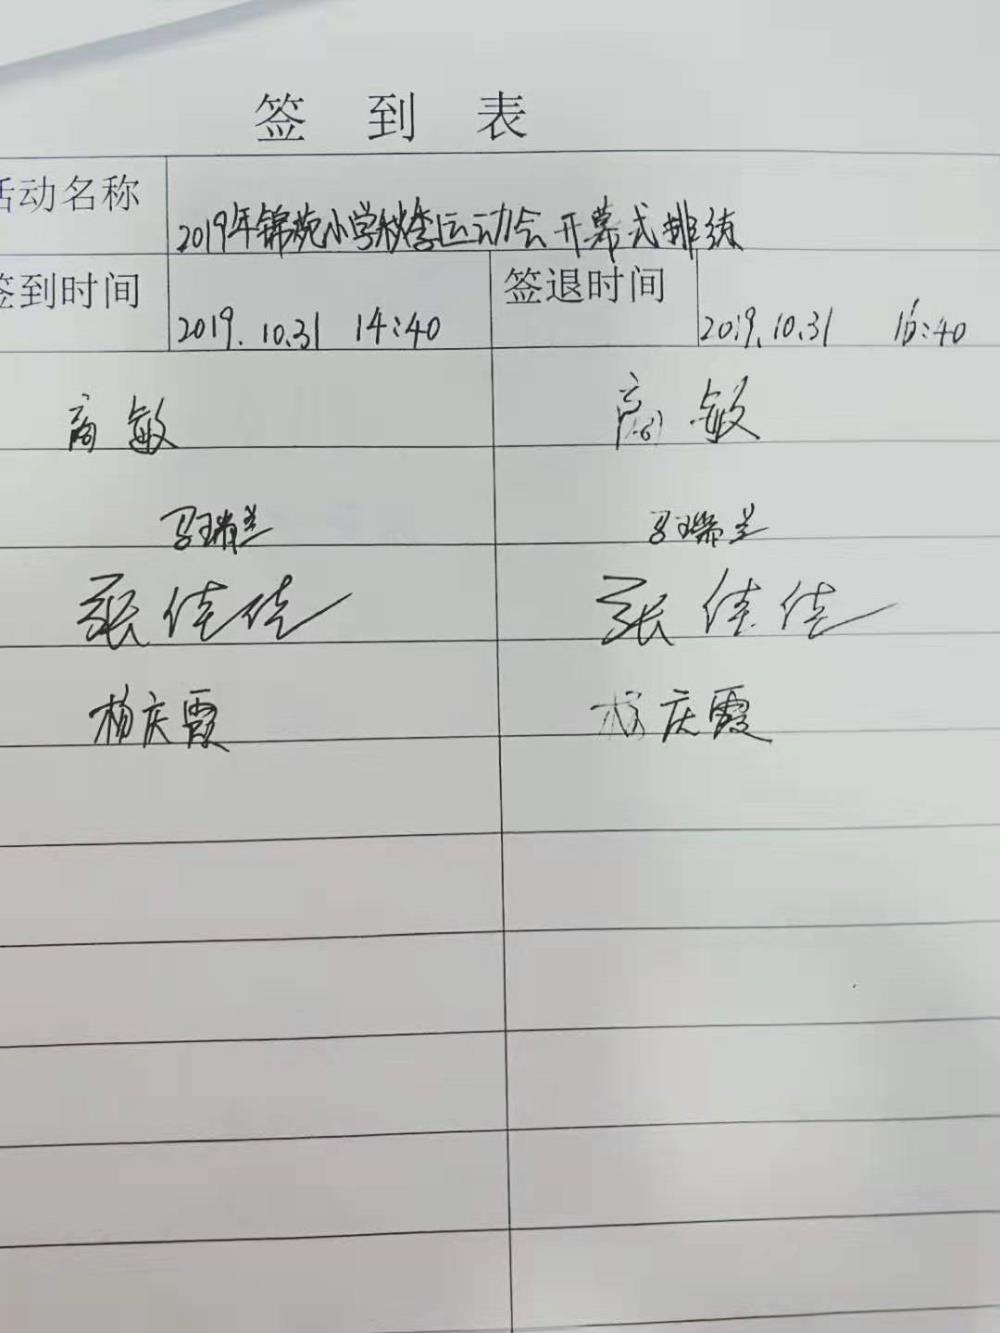 签到表
活动名称 2019年锦苑小学秋季运动会开幕式排练
签到时间 2019.10.31 14:40 签退时间 2019.10.31 16:40
商敏 商敏
马瑞兰 马瑞兰
张佳佳 张佳佳
杨庆霞 杨庆霞